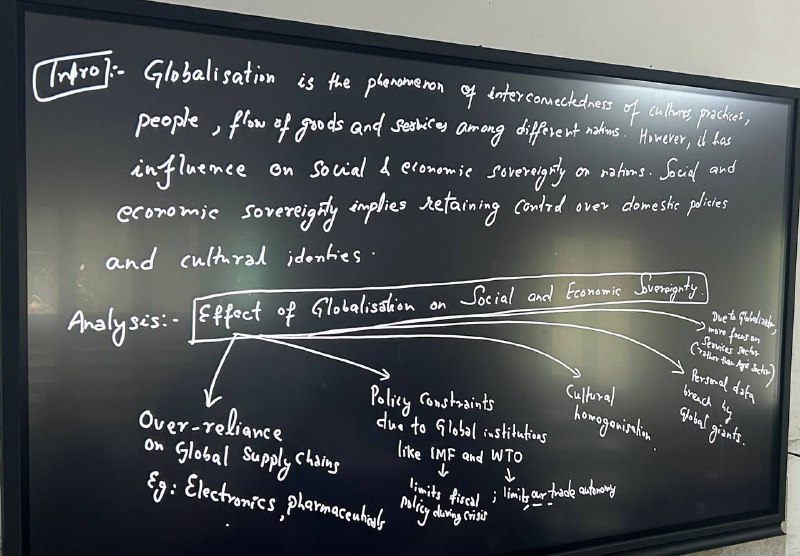 Intro :- Globalisation is the phenomenon of interconnectedness of cultures, practices,
people, flow of goods and services among different nations. However, it has
influence on social & economic sovereignty on nations. Social and
economic sovereignty implies retaining control over domestic policies
and cultural identies.
Analysis:- Effect of Globalisation on Social and Economic Sovereignty.
Over-reliance
on Global Supply Chains
Eg: Electronics, pharmaceuticals
Policy Constraints
due to Global institutions
like IMF and WTO
limits fiscal ; limits our trade autonomy
policy during crisis
Cultural
homogonisation.
Personal data
breach by
Global giants.
Due to Globalization,
more focus on
Services sector
(rather than Agri sector)